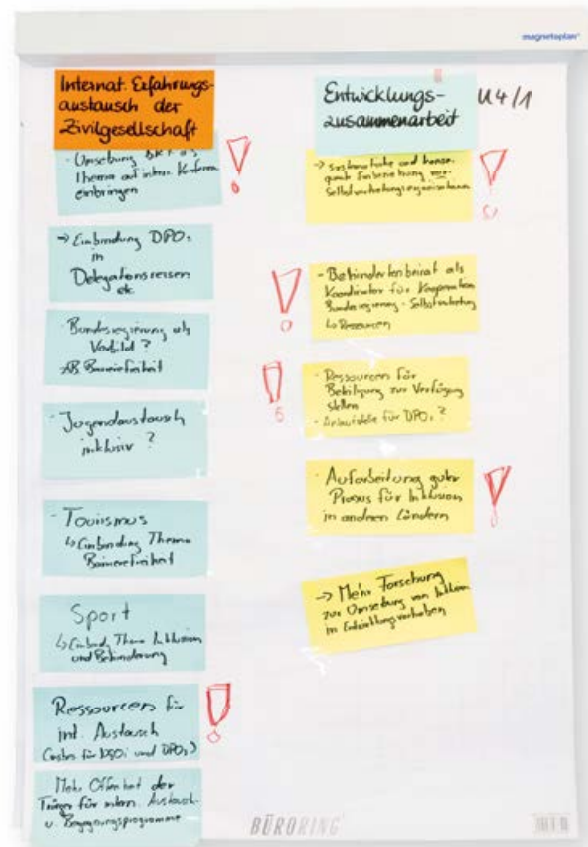 magnetoplan
Internat. Erfahrungs-
austausch der
Zivilgesellschaft
- Umsetzung BRK als
Thema auf intern. Konferenz
einbringen
→ Einbindung DPOs
in
Delegationsreisen
etc
- Bundesregierung als
Vorbild?
zB Barrierefreiheit
- Jugendaustausch
inklusiv?
- Tourismus
↳ Einbindung Thema
Barrierefreiheit
Sport
↳ Einbindg Thema Inklusion
und Behinderung
Ressourcen für
int. Austausch
für und DPOs)
Mehr Offenheit der
Träger für intern. Austausch-
u. Begegnungsprogramme
Entwicklungs-
zusammenarbeit
U4/1
→ systematische und konse-
quente Einbeziehung von
Selbstvertretungsorganisationen
- Behindertenbeirat als
Koordinator für Kooperation
Bundesregierung - Selbstvertretung
↳ Ressourcen
- Ressourcen für
Beteiligung zur Verfügung
stellen
- Anlaufstelle für DPOs?
- Aufarbeitung guter
Praxis für Inklusion
in anderen Ländern
→ Mehr Forschung
zur Umsetzung von Inklusion
in Entwicklungsvorhaben
BÜRORING